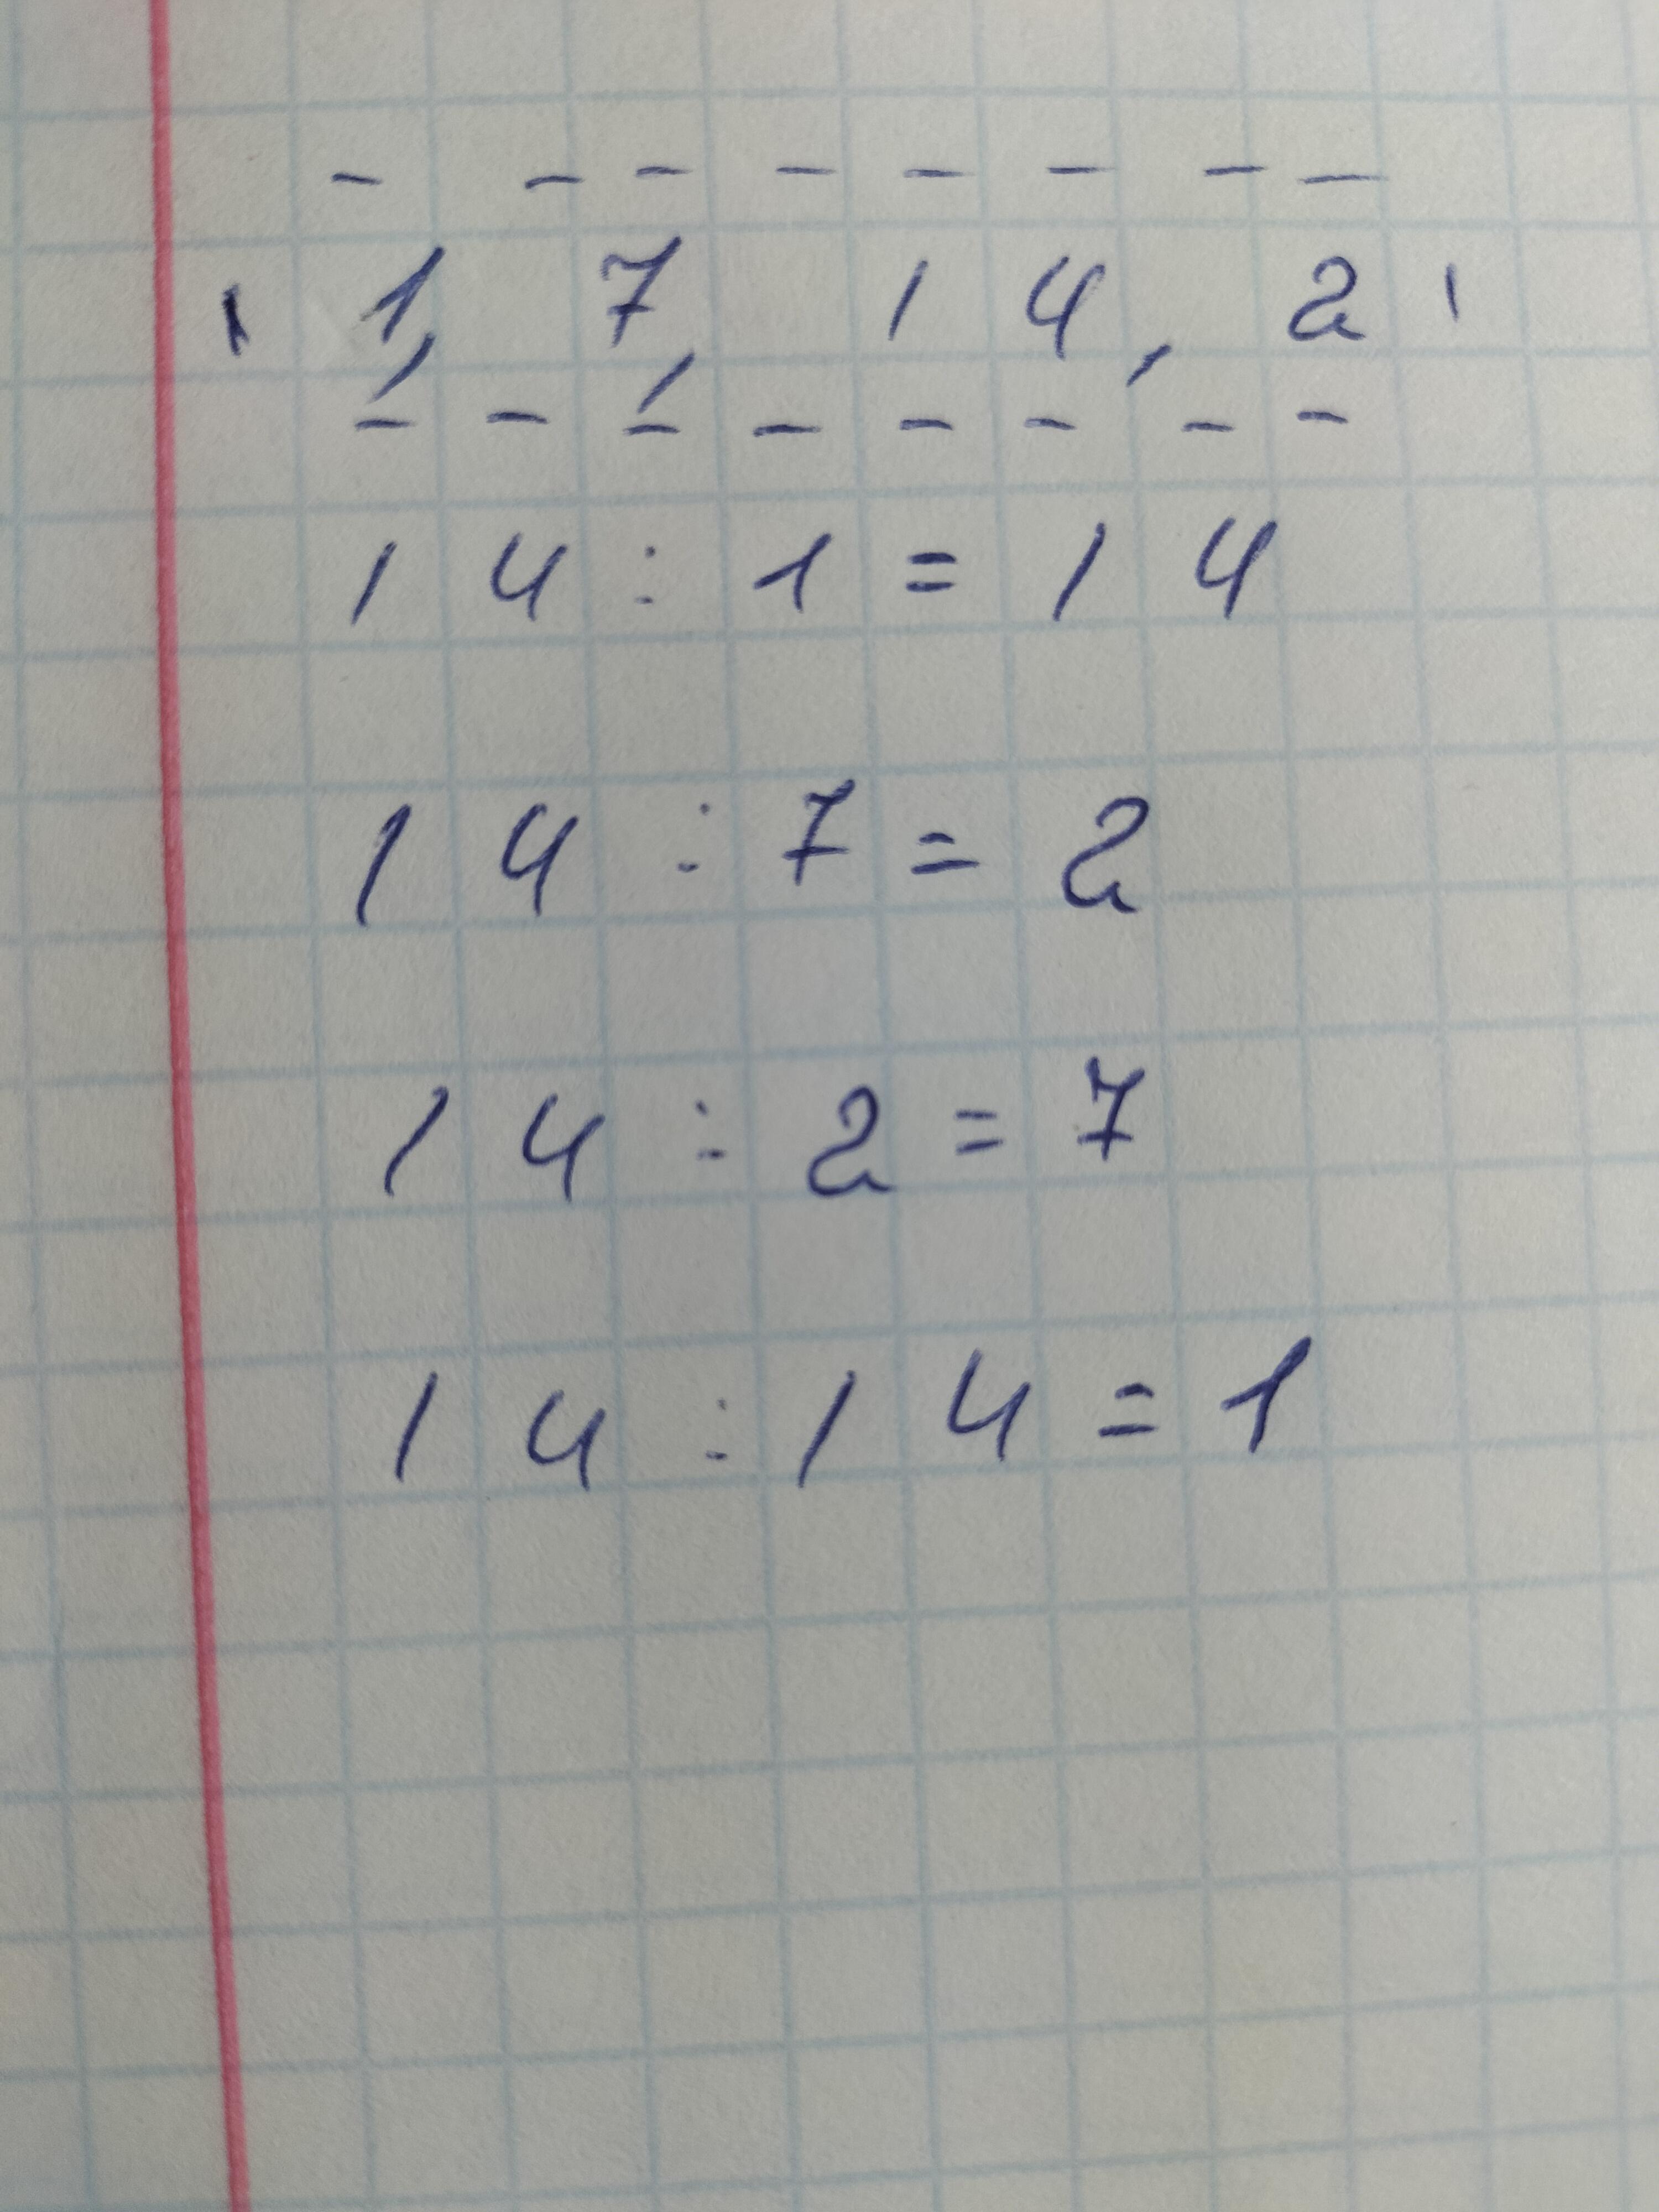 1, 7, 14, 2
14 : 1 = 14
14 : 7 = 2
14 : 2 = 7
14 : 14 = 1